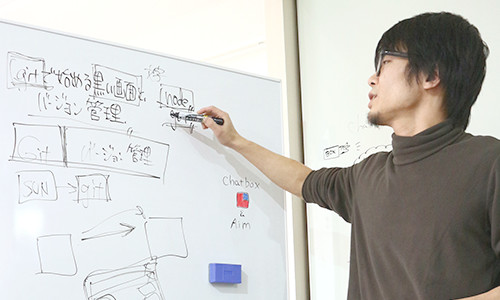 gitで始める黒い画面と
バージョン管理
node
Git
バージョン管理
SVN → git
Chatbox
Aim